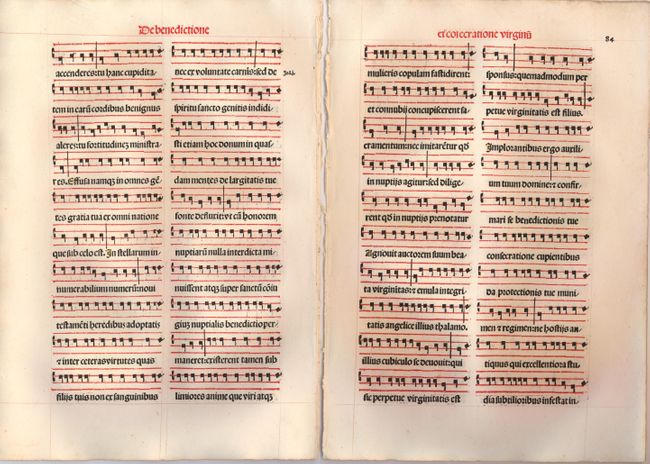 De benedictione
accenderes: tu hanc cupidita⸗
tem in earũ cordibus benignus
aleres: tu fortitudineʒ ministra⸗
res. Effusa namqʒ in omnes gẽ⸗
tes gratia tua ex omni natione
que sub celo est. In stellarum in⸗
numerabilium numerũ: noui
testamẽti heredibus adoptatis
⁊ inter ceteras virtutes quas
filijs tuis non ex sanguinibus
nec ex voluntate carnis: sed de
spiritu sancto genitis indidi⸗
sti etiam hoc donum in quas⸗
dam mentes de largitatis tue
fonte defluxit: vt cũ honorem
nuptiarũ nulla interdicta mi⸗
nuissent atqʒ super sanctũ cõiu
giuʒ nuptialis benedictio per⸗
maneret: existerent tamen sub
limiores anime que viri atqʒ
et cõsecratione virginũ
84
mulieris copulam fastidirent:
et connubij concupiscerent sa⸗
cramentum: nec imitarẽtur qd
in nuptijs agitur: sed dilige⸗
rent qd in nuptijs prenotatur
Agnouit auctorem suum bea⸗
ta virginitas: ⁊ emula integri⸗
tatis angelice illius thalamo.
illius cubiculo se deuouit: qui
sic perpetue virginitatis est
sponsus: quemadmodum per
petue virginitatis est filius.
Implorantibus ergo auxili⸗
um tuum domine: ⁊ confir⸗
mari se benedictionis tue
consecratione cupientibus
da protectionis tue muni⸗
men ⁊ regimen: ne hostis an⸗
tiquus qui excellentiora stu⸗
dia subtilioribus infestat in⸗